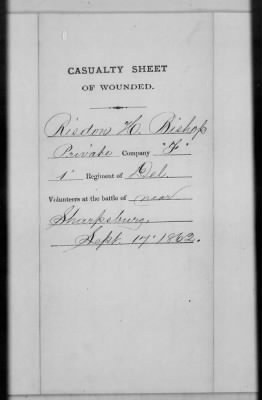 CASUALTY SHEET
OF WOUNDED.
Risdon H. Bishop
Private Company "F"
1" Regiment of Del.
Volunteers at the battle of near
Sharpsburg,
Sept. 17" 1862.